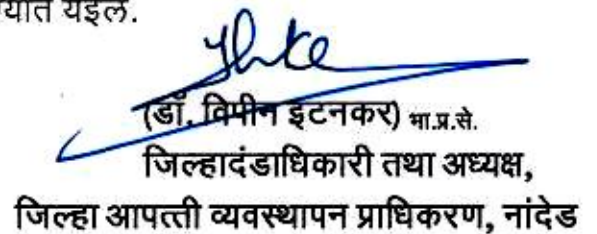 यात येईल.
(डॉ. विपीन इटनकर) भा.प्र.से.
जिल्हादंडाधिकारी तथा अध्यक्ष,
जिल्हा आपत्ती व्यवस्थापन प्राधिकरण, नांदेड